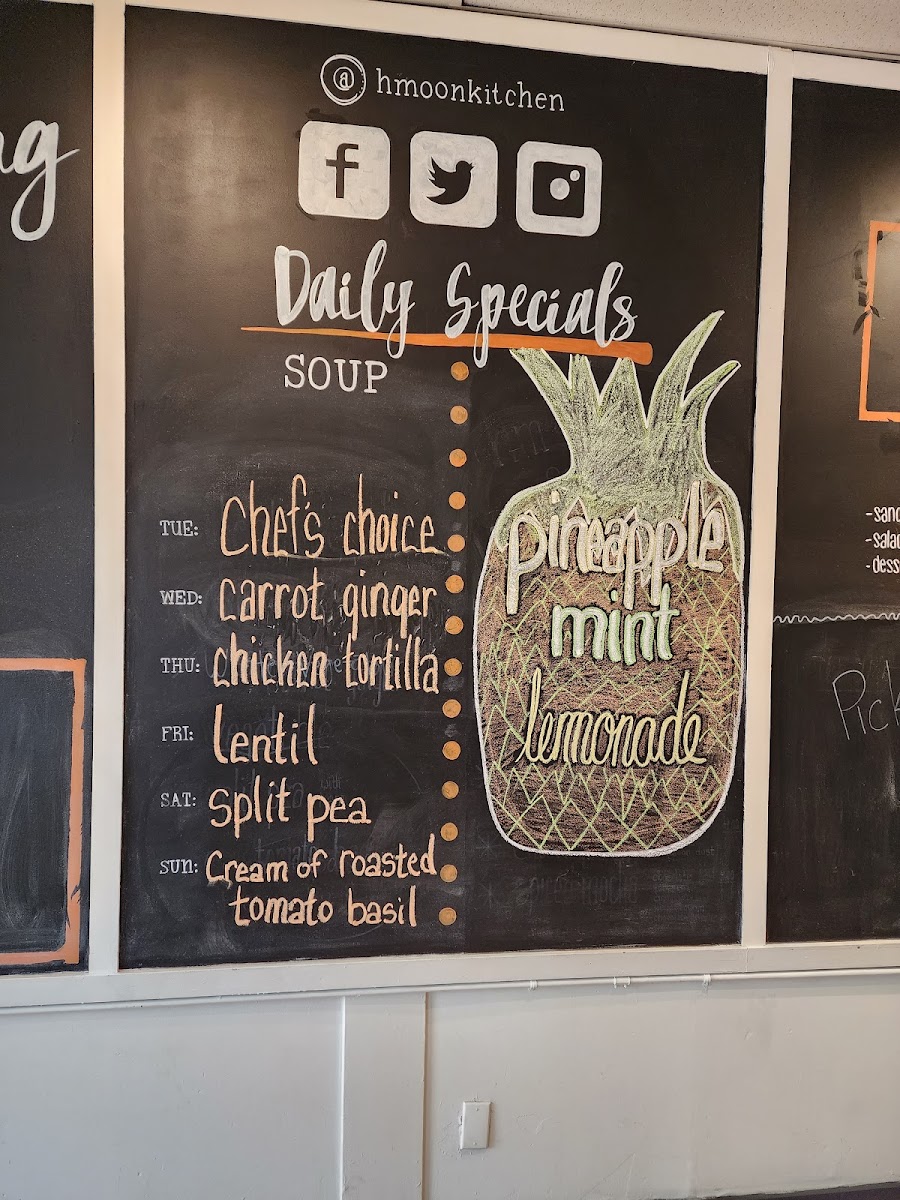 ng
@ hmoonkitchen
f
Daily Specials
SOUP
TUE: Chef's choice
WED: carrot ginger
THU: chicken tortilla
FRI: Lentil
SAT: split pea
SUN: Cream of roasted
tomato basil
pineapple
mint
lemonade
- sand
- salad
- dess
Pick